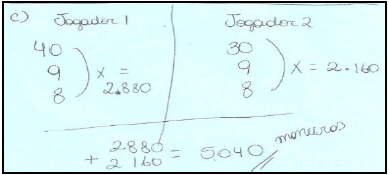 c) Jogador 1
40
9
8
) x =
2.880
Jogador 2
30
9
8
) x = 2.160
2880
+ 2160 = 5.040 maneiras